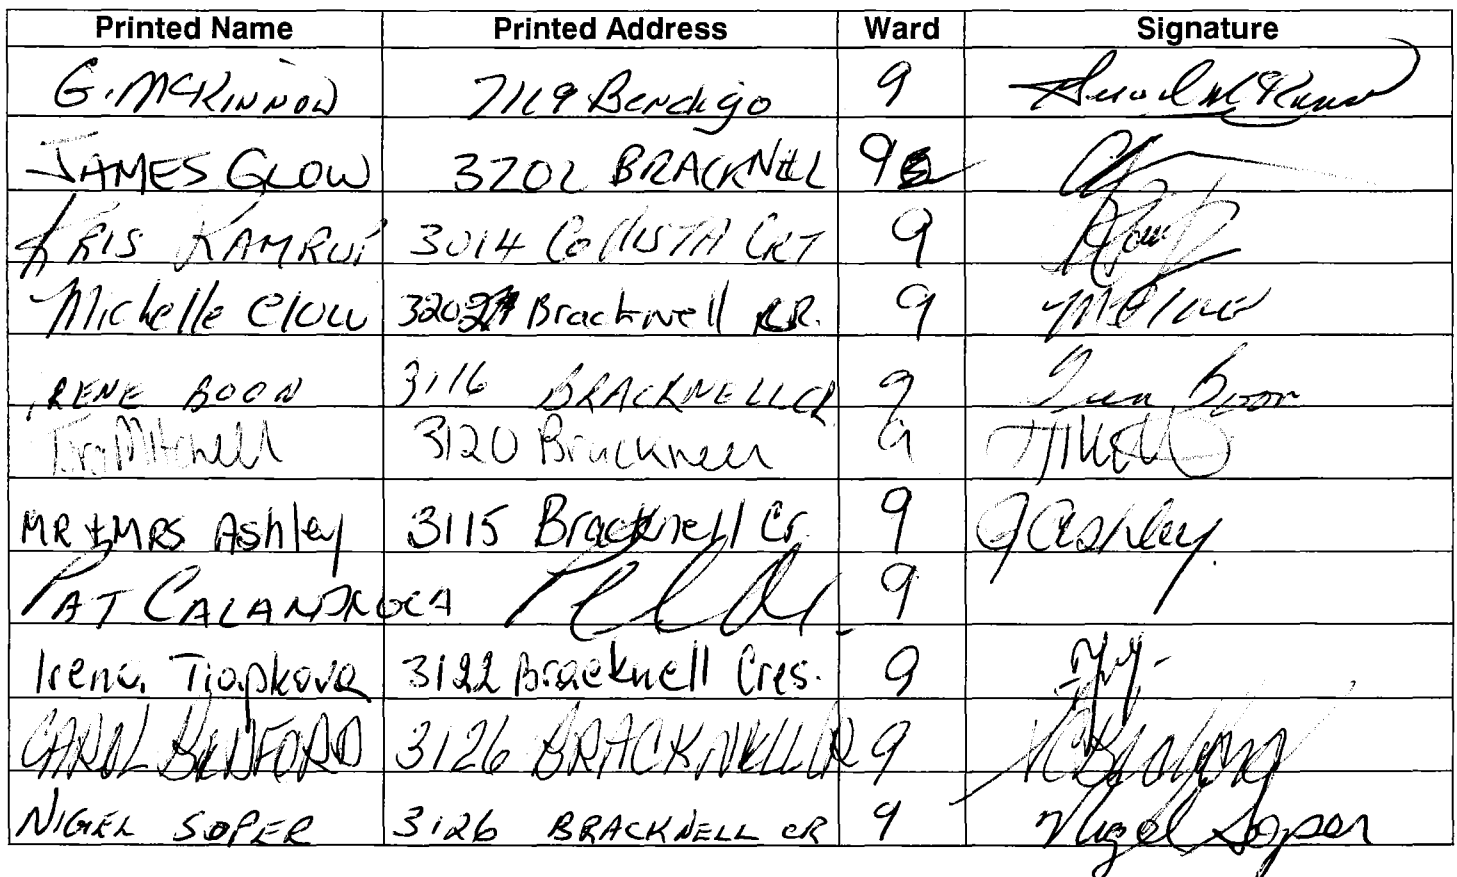 Printed Name Printed Address Ward Signature
G. McKINNON 7119 Bendigo 9
JAMES CLOW 3202 BRACKNELL 9
KRIS 3014 CRT 9
Michelle Clow 3202 Bracknell CR. 9
IRENE BOON 3116 BRACKNELL CR 9 Boon
Mitchell 3120 Bracknell 9
MR & MRS Ashley 3115 Bracknell Cr. 9 J Ashley.
PAT 9
Irena Tiapkova 3122 Bracknell Cres. 9
CAROL BENFORD 3126 BRACKNELL CR 9
NIGEL SOPER 3126 BRACKNELL CR 9 Nigel Soper